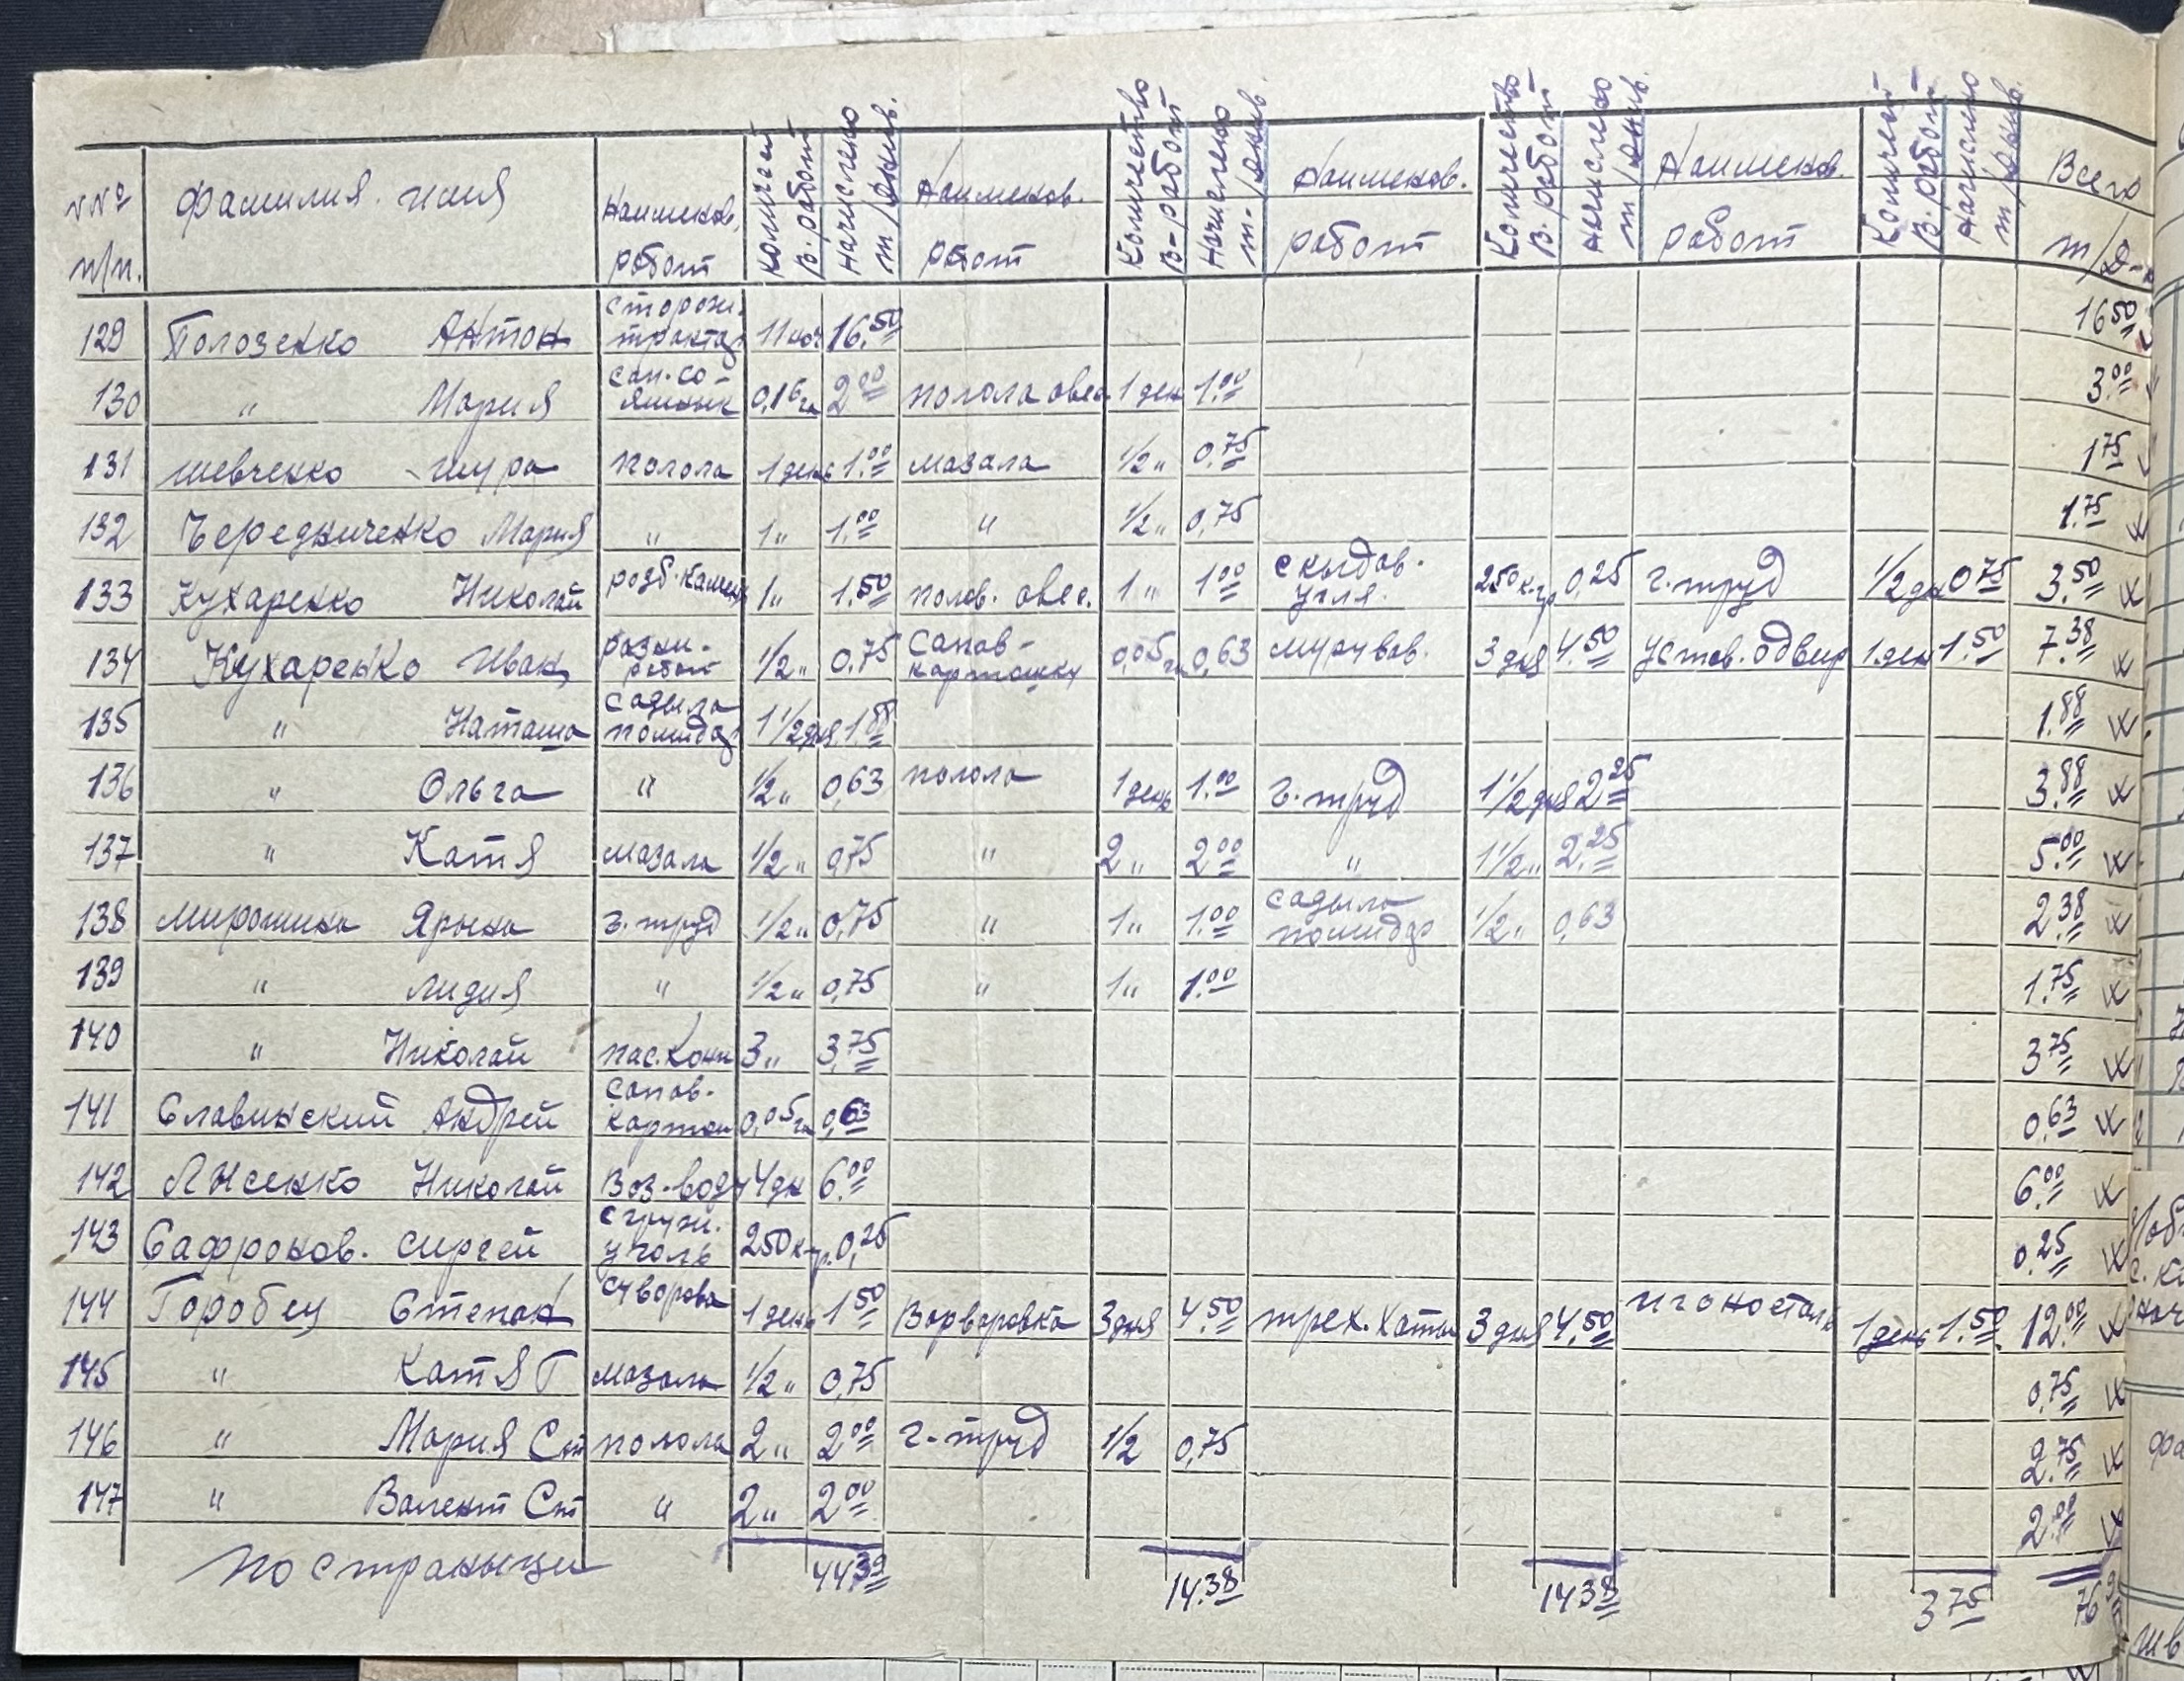 №№ п/п. фамилия. имя Наименов. работ Количест В. работ Начислено т/дней. Наименов. работ Количество В-работ Начислено т-/дней. Наименов. работ Количество В. работ Начислено т/дней. Наименов. работ Количест В. работ Начислено т/дней. Всего т/д-
129 Полозенко Антон сторож. трактор 11 ноч 16.50 16 50
130 " Мария сап. со-яшнык 0,16 га 2 00 полола овес 1 ден 1.00 3.00
131 шевченко шура полола 1 день 1.00 мазала 1/2 " 0.75 1 75
132 Чередниченко Мария " 1 " 1.00 " 1/2 " 0,75 1.75
133 Кухаренко Николай розб. камен 1 " 1.50 полов. овес. 1 " 1 00 скыдов. угля. 250 к.гр 0,25 г. труд 1/2 дн 0 75 3.50
134 Кухаренко Иван разн. работ 1/2 " 0.75 Сапов-картошку 0,05 га 0,63 муривов. 3 дня 4.50 устов. одвир 1 ден 1.50 7.38
135 " Наташа садыла помидор 1 1/2 дня 1.88 1.88
136 " Ольга " 1/2 " 0,63 полола 1 день 1.00 г. труд 1 1/2 дня 2 25 3.88
137 " Катя мазала 1/2 " 0,75 " 2 " 2 00 " 1 1/2 " 2.25 5.00
138 мирошник Ярына г. труд 1/2 " 0,75 " 1 " 1.00 садыла помидор 1/2 " 0,63 2.38
139 " лидия " 1/2 " 0,75 " 1 " 1.00 1.75
140 " Николай пас. Кони 3 " 3.75 3 75
141 Славинский Андрей сапов. картош 0,05 га 0,63 0,63
142 Лысенко Николай Воз-воду 4 дн 6.00 6.00
143 Сафронов. сиргей сгруж. уголь 250 к-гр. 0,25 0.25
144 Горобец Степан суворова 1 день 1 50 Варваровка 3 дня 4.50 трех. хаты 3 дня 4.50 1 день 1.50 12.00
145 " Катя Г мазала 1/2 " 0,75 0,75
146 " Мария Ст полола 2 " 2 00 г-труд 1/2 0,75 2.75
147 " Валент Ст " 2 " 2 00 2.00
по страныци 44 39 14.38 14 38 3 75 76